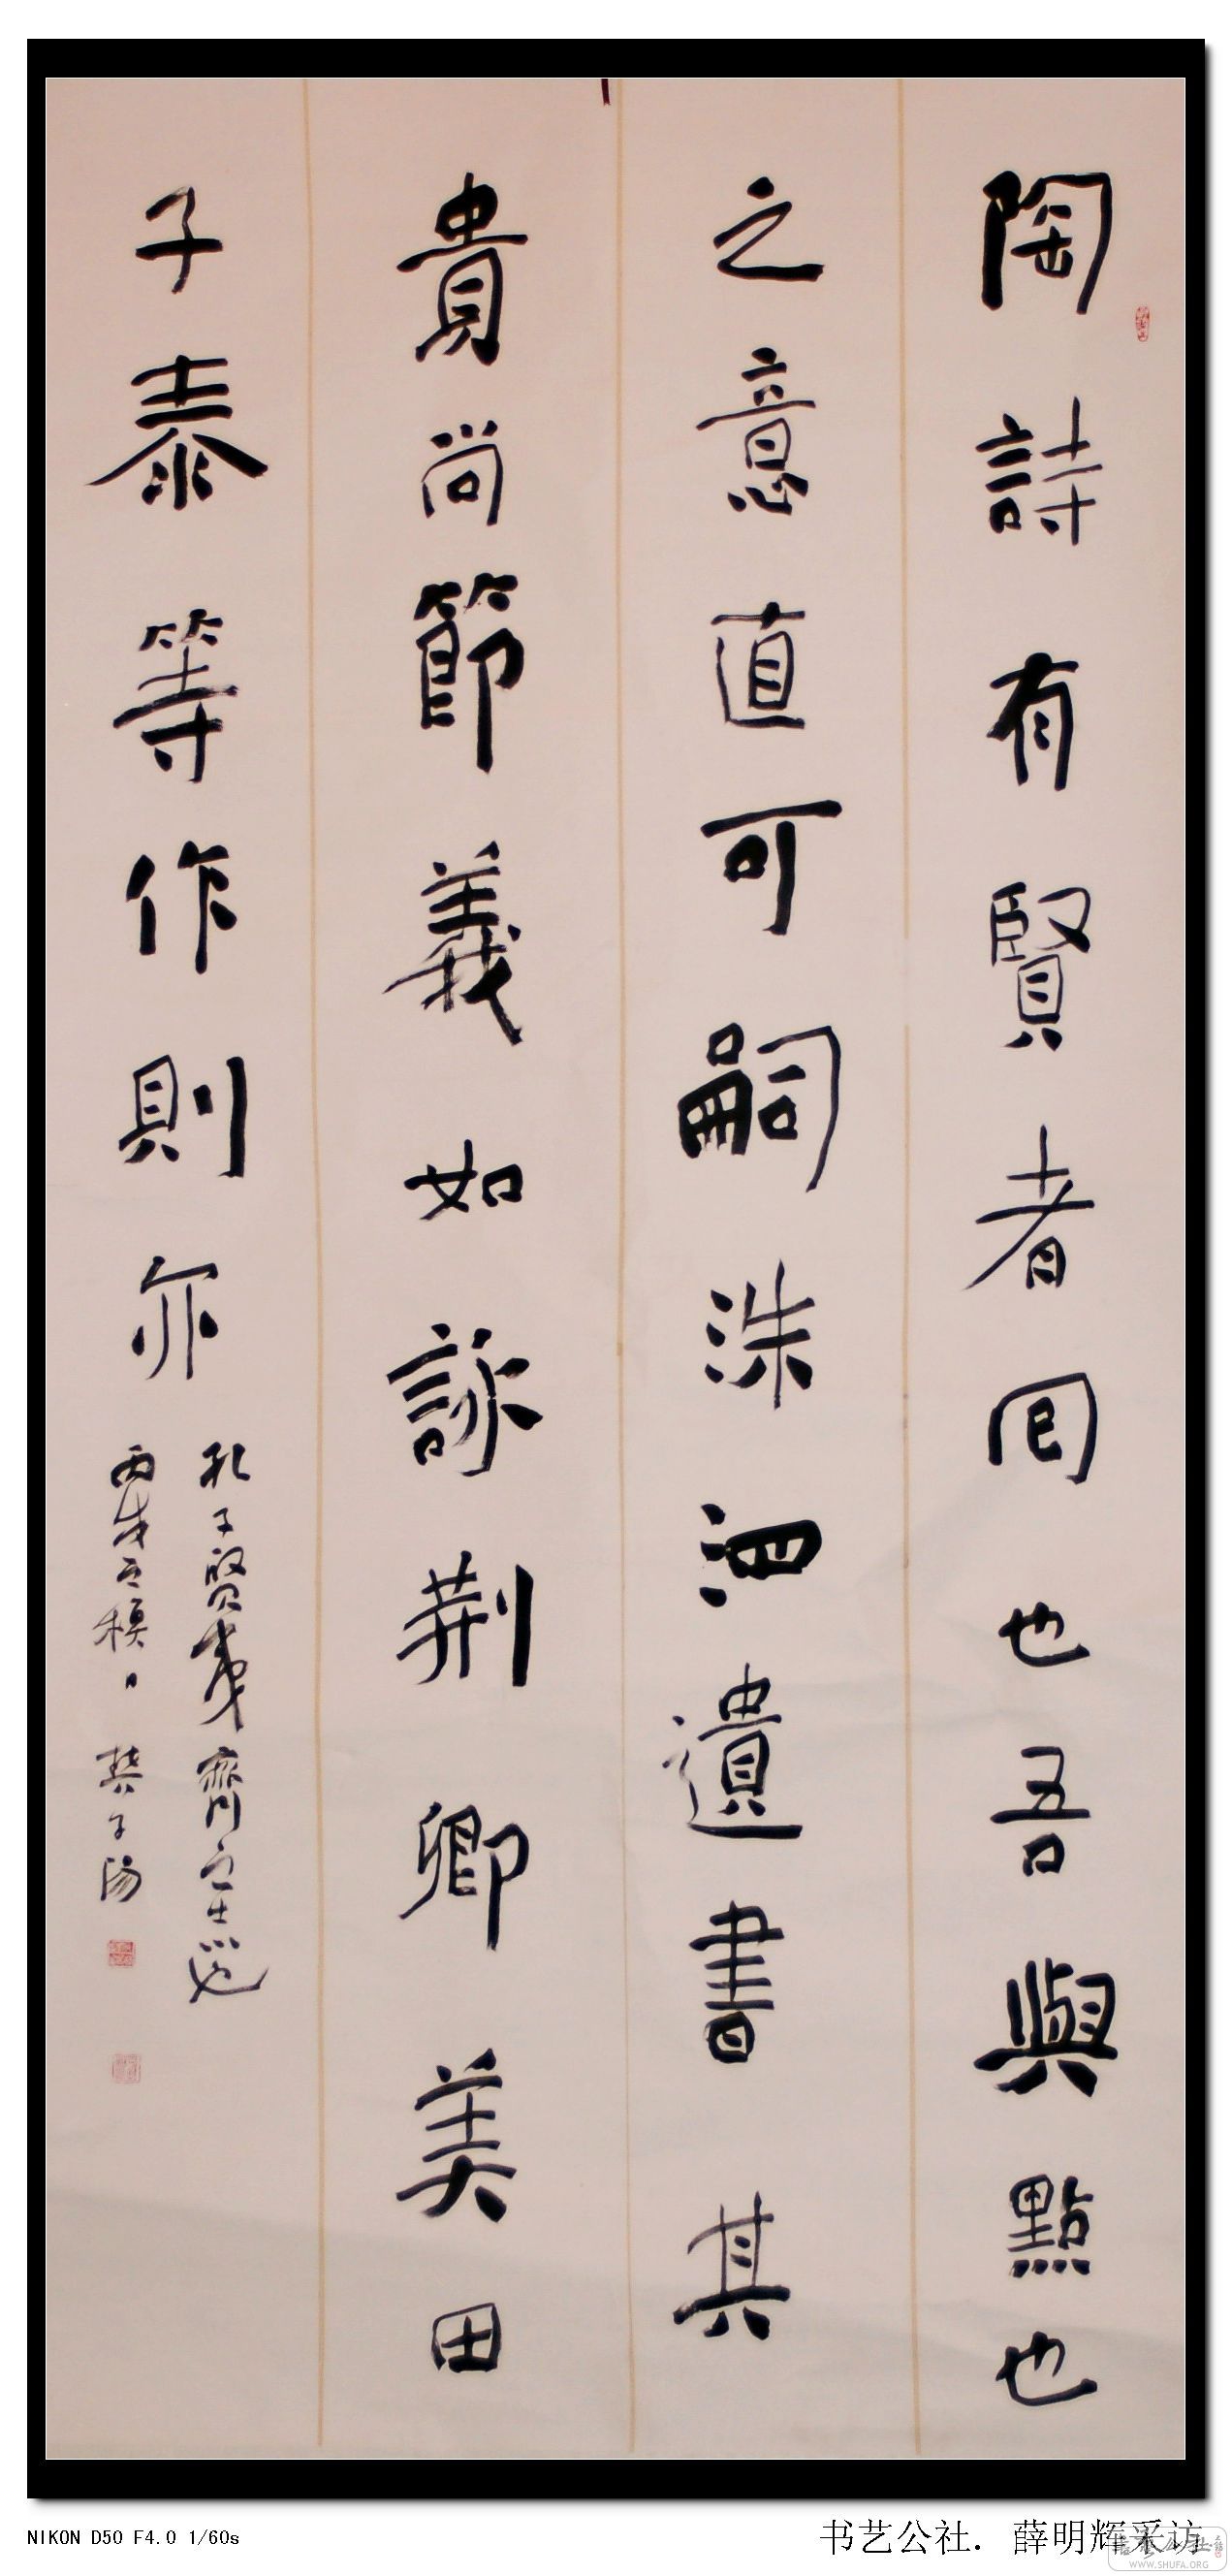 陶詩有賢者囘也吾與點也
之意直可嗣洙泗遺書其
貴尚節義如詠荆卿美田
子泰等作則亦
孔子賢夷齊之志也
丙戌之積日 樊子陽
NIKON D50 F4.0 1/60s
书艺公社. 薛明辉采访
WWW.SHUFA.ORG